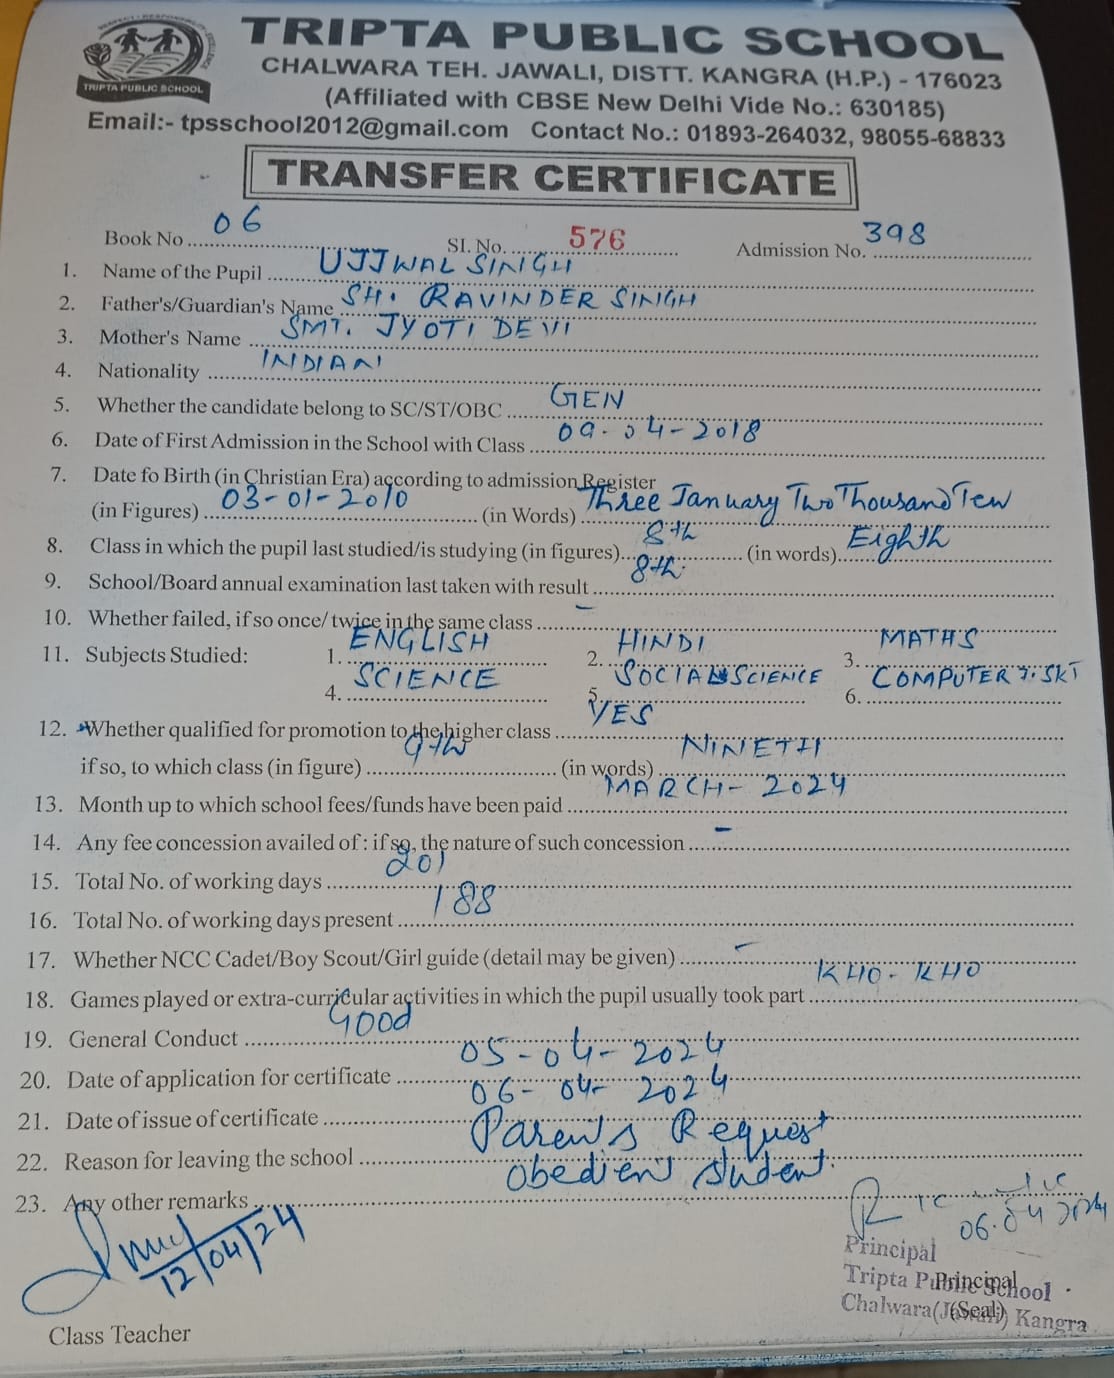 TRIPTA PUBLIC SCHOOL
TRIPTA PUBLIC SCHOOL
CHALWARA TEH. JAWALI, DISTT. KANGRA (H.P.) - 176023
(Affiliated with CBSE New Delhi Vide No.: 630185)
Email:- tpsschool2012@gmail.com Contact No.: 01893-264032, 98055-68833
TRANSFER CERTIFICATE
Book No 06 SI. No. 576 Admission No. 398
1. Name of the Pupil UJJWAL SINGH
2. Father's/Guardian's Name SH. RAVINDER SINGH
3. Mother's Name SMT. JYOTI DEVI
4. Nationality INDIAN
5. Whether the candidate belong to SC/ST/OBC GEN
6. Date of First Admission in the School with Class 09-04-2018
7. Date fo Birth (in Christian Era) according to admission Register
(in Figures) 03-01-2010 (in Words) Three January Two Thousand Ten
8. Class in which the pupil last studied/is studying (in figures) 8th (in words) Eighth
9. School/Board annual examination last taken with result 8th
10. Whether failed, if so once/ twice in the same class –
11. Subjects Studied: 1. ENGLISH 2. HINDI 3. MATHS
4. SCIENCE 5. SOCIAL SCIENCE 6. COMPUTER SKT
12. Whether qualified for promotion to the higher class YES
if so, to which class (in figure) 9th (in words) NINETH
13. Month up to which school fees/funds have been paid MARCH- 2024
14. Any fee concession availed of : if so, the nature of such concession –
15. Total No. of working days 201
16. Total No. of working days present 188
17. Whether NCC Cadet/Boy Scout/Girl guide (detail may be given) –
18. Games played or extra-curricular activities in which the pupil usually took part KHO-KHO
19. General Conduct Good
20. Date of application for certificate 05-04-2024
21. Date of issue of certificate 06-04-2024
22. Reason for leaving the school Parents Request
23. Any other remarks Obedient student.
12/04/24
06.04.2024
Principal
Tripta Public School
Principal
Chalwara Kangra
(Seal)
Class Teacher